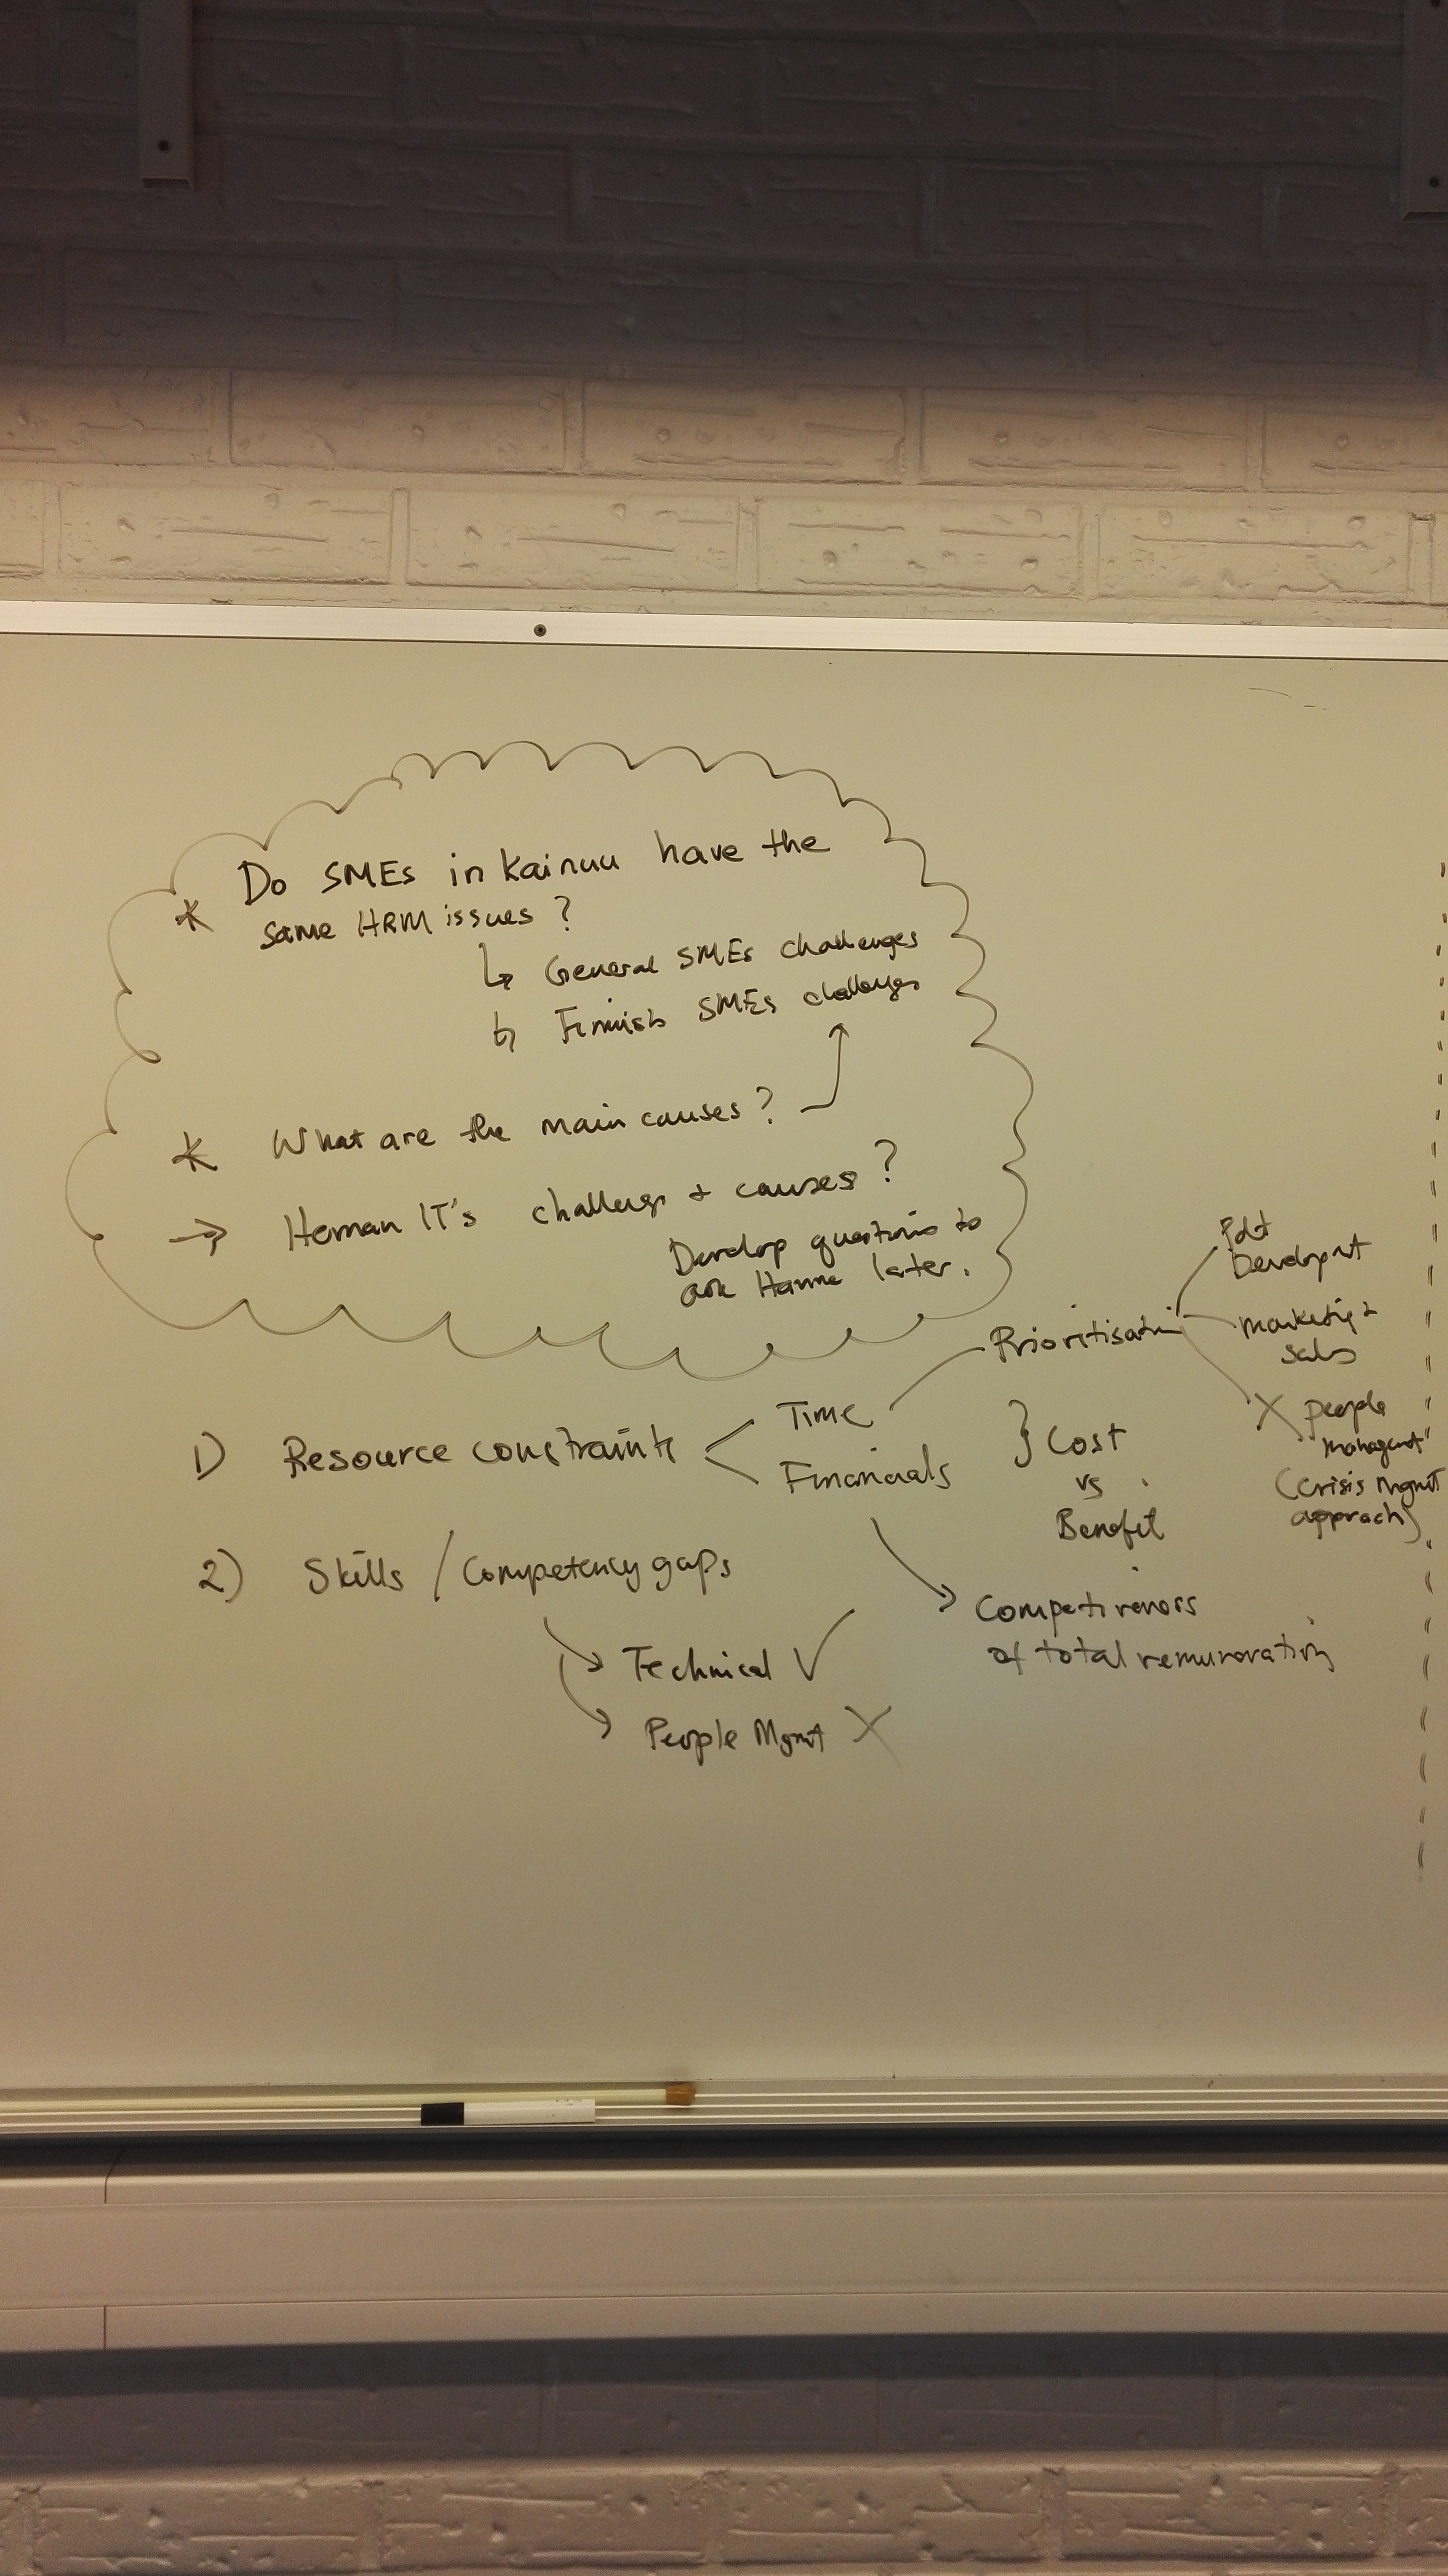 * Do SMEs in Kainuu have the
same HRM issues ?
↳ General SMEs challenges
↳ Finnish SMEs challenges
* What are the main causes ?
→ Heman IT's challengs + causes ?
Develop questions to
ask Hanne later.
Prioritisatin
Pdt
Developmt
Marketig +
Sales
X people
"managemt"
(Crisis Mgmt
approach)
1) Resource constraints < Time
Financials
} Cost
vs
Benefit
2) Skills / Competency gaps
Competiveness
of total remuneration
Technical ✓
People Mgmt X